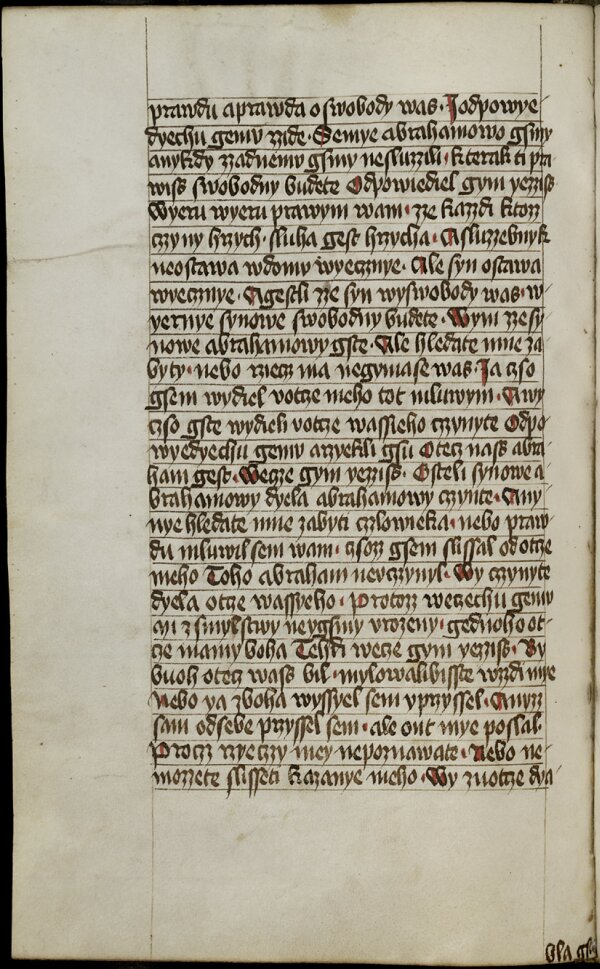 prawdu a prawda oswobody was · I odpowye-
dyechu gemu zzide · Semye abrahamowo gsmy
anykdy zzadnemu gsmy nesluzzili · kterak ti pra-
wiss swobodny budete Odpowiediel gym yezziss
Wyeru wyeru prawym wam · zze kazzdi ktozz
czyny hrzych · sluha gest hrzycha · A sluzzebnyk
neostawa wdomu wyecznye · Ale syn ostawa
wyecznye · A gestli zze syn wyswobody was · w-
yernye synowe swobodny budete · Wym zze sy-
nowe abrahamowy gste · Ale hledate mne za-
byty · nebo rzecz ma negymase was · Ia czso
gsem wydiel v otcze meho tot mluwym · A wy
czso gste wydieli v otcze wassieho czynyte Odpo-
wyedyechu gemu a rzyekli gsu Otecz nass abra-
ham gest · Wecze gym yezziss · Gsteli synowe a-
brahamowy dyela abrahamowy czynte · A ny-
nye hledate mne zabyti czlowieka · nebo praw-
du mluwil sem wam · czsozz gsem slissal od otcze
meho Toho abraham neyczynyl · Wy czynyte
dyela otcze wassyeho · Protozz weczechu gemu
My z smylstwy neygsmy vrozeny · gednoho ot-
cze mamy boha Tehdi wecze gym yezziss · By
buoh otecz wass bil · mylowali bisste wzzdi mye
Nebo ya z boha wyssyel sem y przyssel · A nyzz
sam od sebe przyssel sem · ale on mye poslal ·
Proczz rzyeczy mey nepoznawate · Nebo ne-
mozzete slisseti kazanye meho · Wy z uotcze dya-